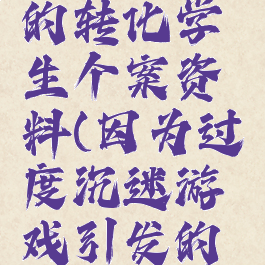 的转化学
生个案资
料(因为过
度沉迷游
戏引发的